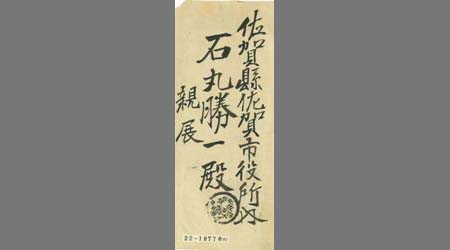 佐賀縣佐賀市役所内
石丸勝一殿
親展
22-18776